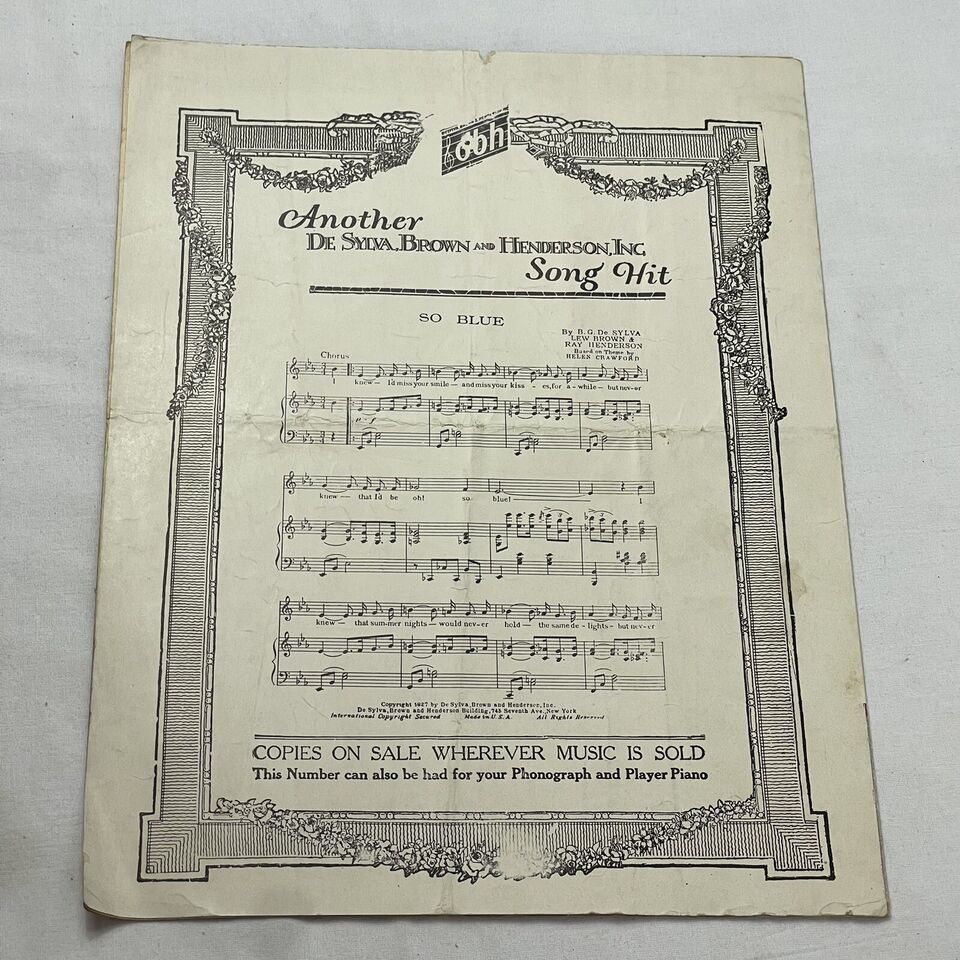 dbh
Another
DE SYLVA, BROWN AND HENDERSON, INC.
Song Hit
SO BLUE
By B. G. De SYLVA
LEW BROWN &
RAY HENDERSON
Based on Theme by
HELEN CRAWFORD
Chorus
I knew — I'd miss your smile — and miss your kiss - es, for a - while — but nev-er
knew — that I'd be oh! so blue! I
knew — that sum-mer nights — would nev-er hold — the same de - lights - but nev-er
Copyright 1927 by De Sylva, Brown and Henderson, Inc.
De Sylva, Brown and Henderson Building, 745 Seventh Ave., New York
International Copyright Secured Made in U.S.A. All Rights Reserved
COPIES ON SALE WHEREVER MUSIC IS SOLD
This Number can also be had for your Phonograph and Player Piano